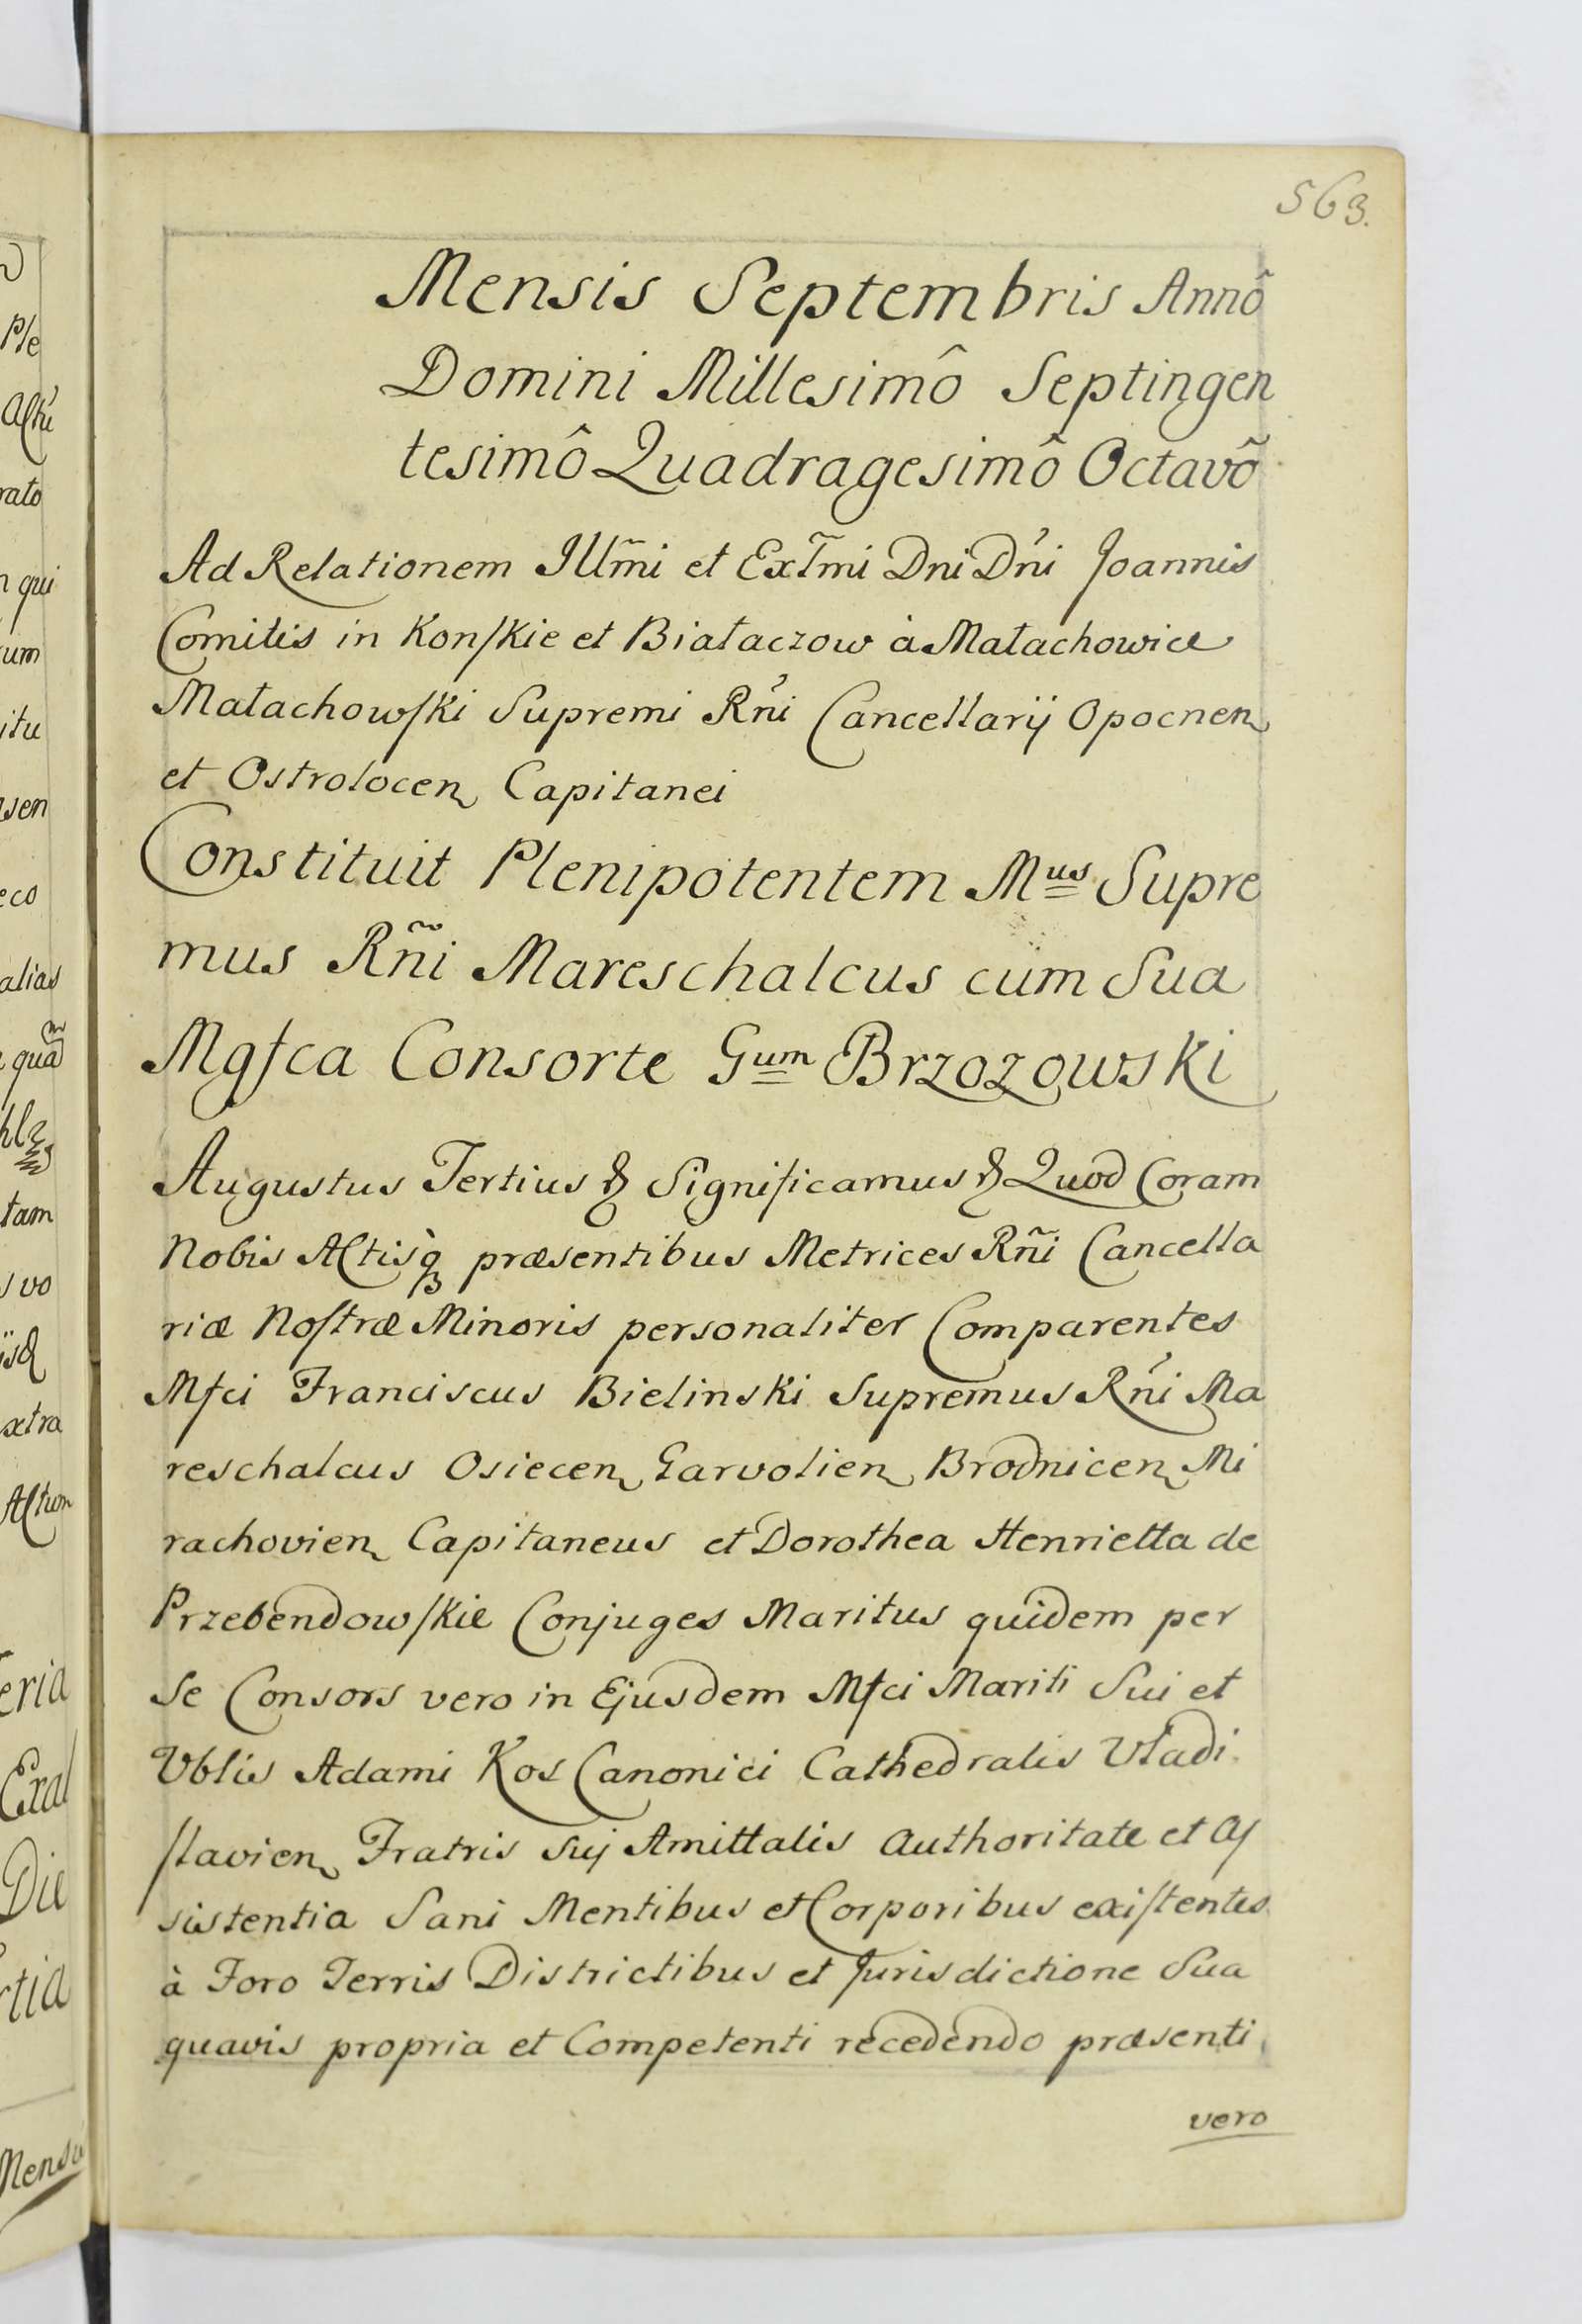 563.
Mensis Septembris Annô
Domini Millesimô Septingen
tesimô Quadragesimô Octavô
Ad Relationem Illm̃i et Exl̃mi Dni Dńi Joannis
Comitis in Konſkie et Białaczow à Małachowice
Małachowſki Supremi Rńi Cancellarij Opocnen
et Ostrolocen Capitanei
Constituit Plenipotentem Mus Supre
mus Rñi Mareschalcus cum Sua
Mgfca Consorte Gum Brzozowski
Augustus Tertius & Significamus & Quod Coram
Nobis Actisq præsentibus Metrices Rñi Cancella
riæ Noſtræ Minoris personaliter Comparentes
Mfci Franciscus Bielinski Supremus Rńi Ma
reschalcus Osiecen Garvolien Brodnicen Mi
rachovien Capitaneus et Dorothea Henrietta de
Przebendowſkie Conjuges Maritus quidem per
Se Consors vero in Ejusdem Mfci Mariti Sui et
Vblis Adami Kos Canonici Cathedralis Vładi
ſlavien Fratris Sui Amittalis Authoritate et Aſ
sistentia Sani Mentibus et Corporibus exiſtentes
à Foro Terris Districtibus et Jurisdictione Sua
quavis propria et Competenti recedendo præsenti
vero